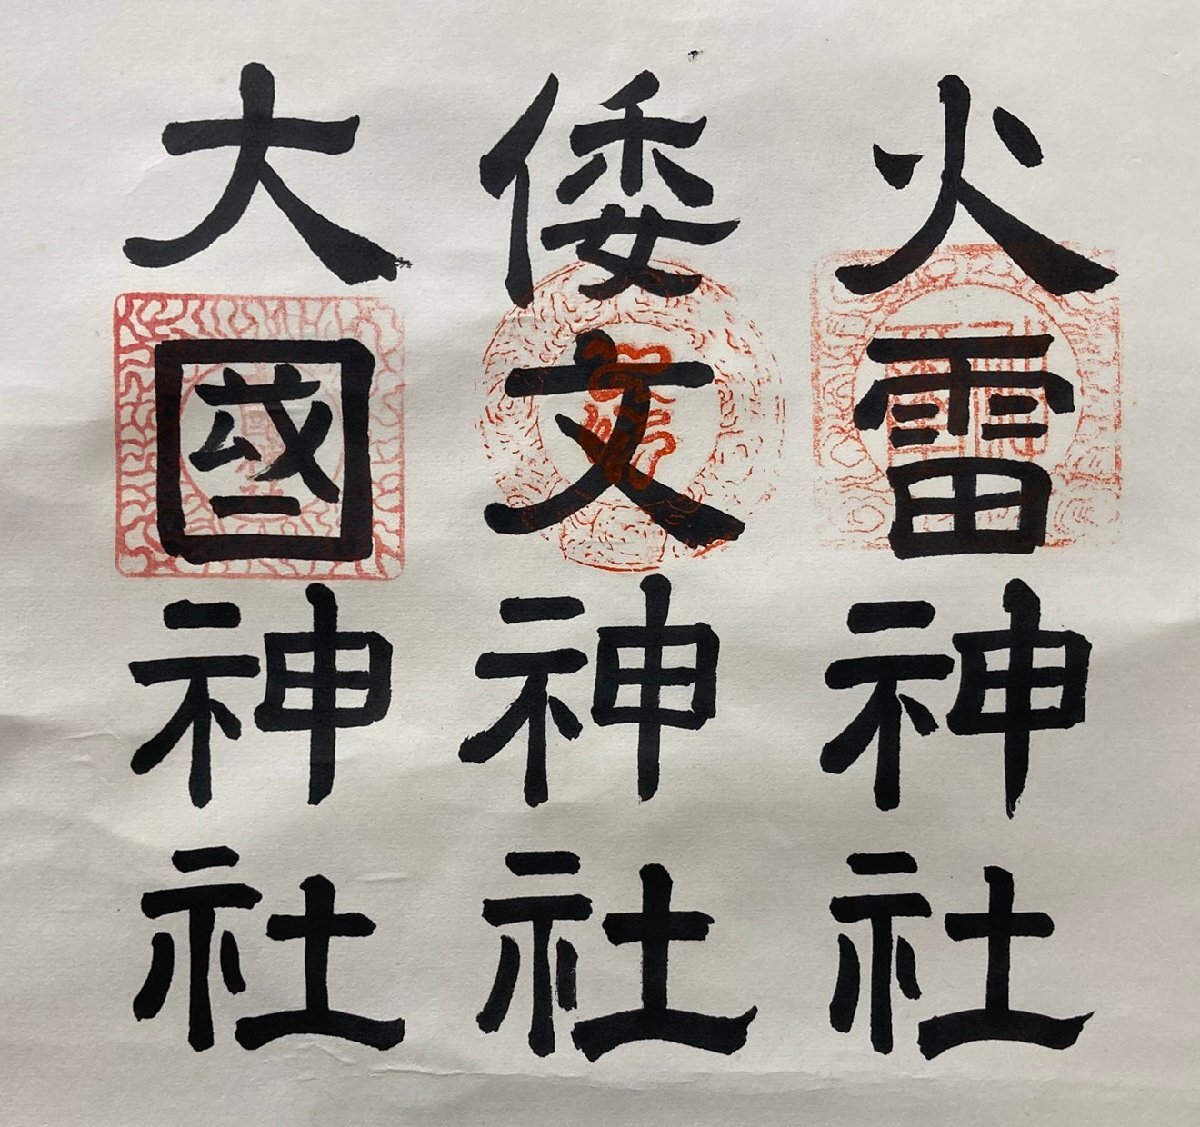 火雷神社
倭文神社
大國神社